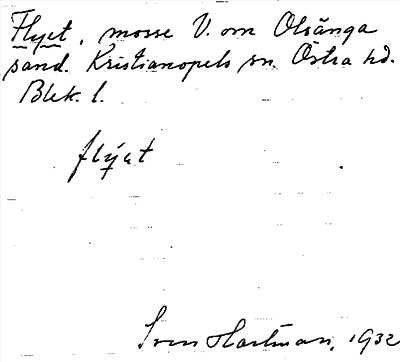 Flyet, mosse V. om Olsänga
sand. Kristianopels sn. Östra hd.
Blek. l.
flyet
Sven Hartman, 1932